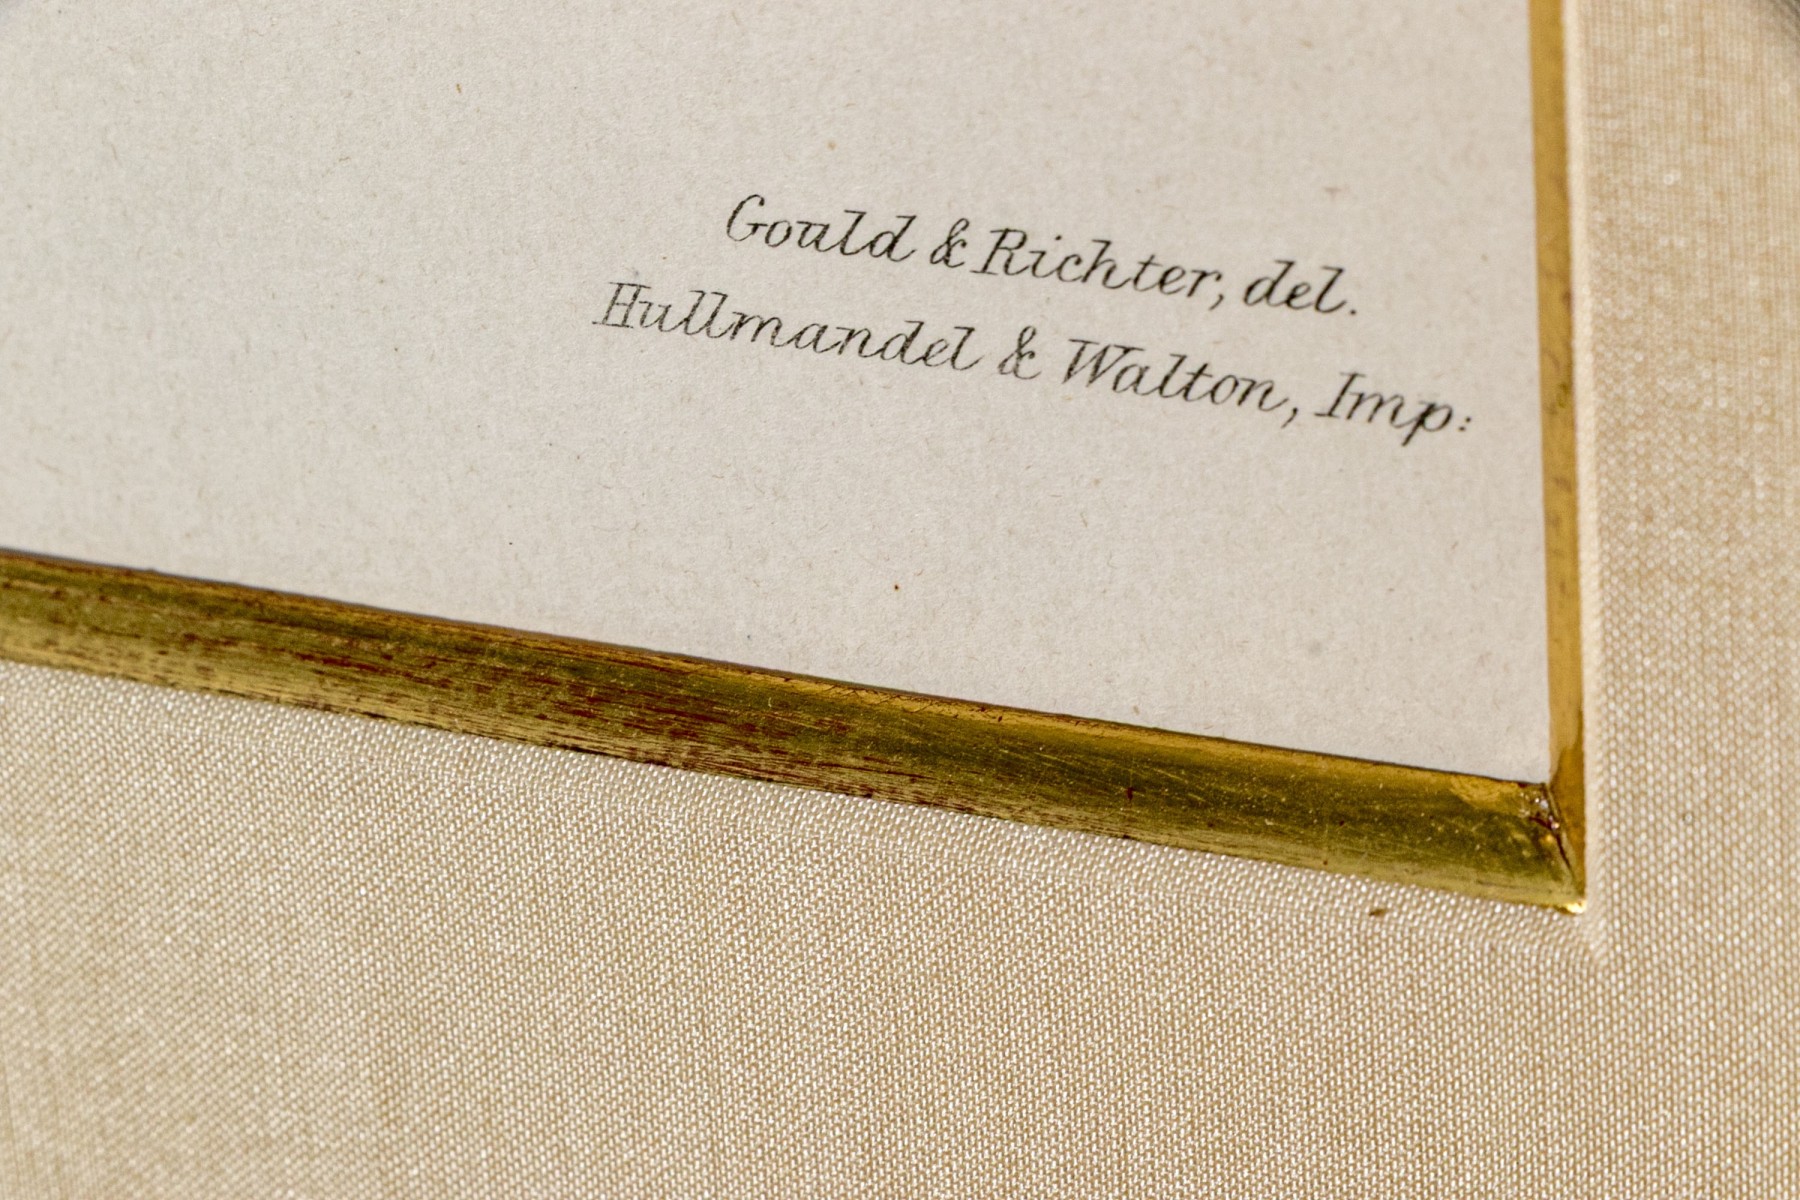 Gould & Richter, del.
Hullmandel & Walton, Imp: